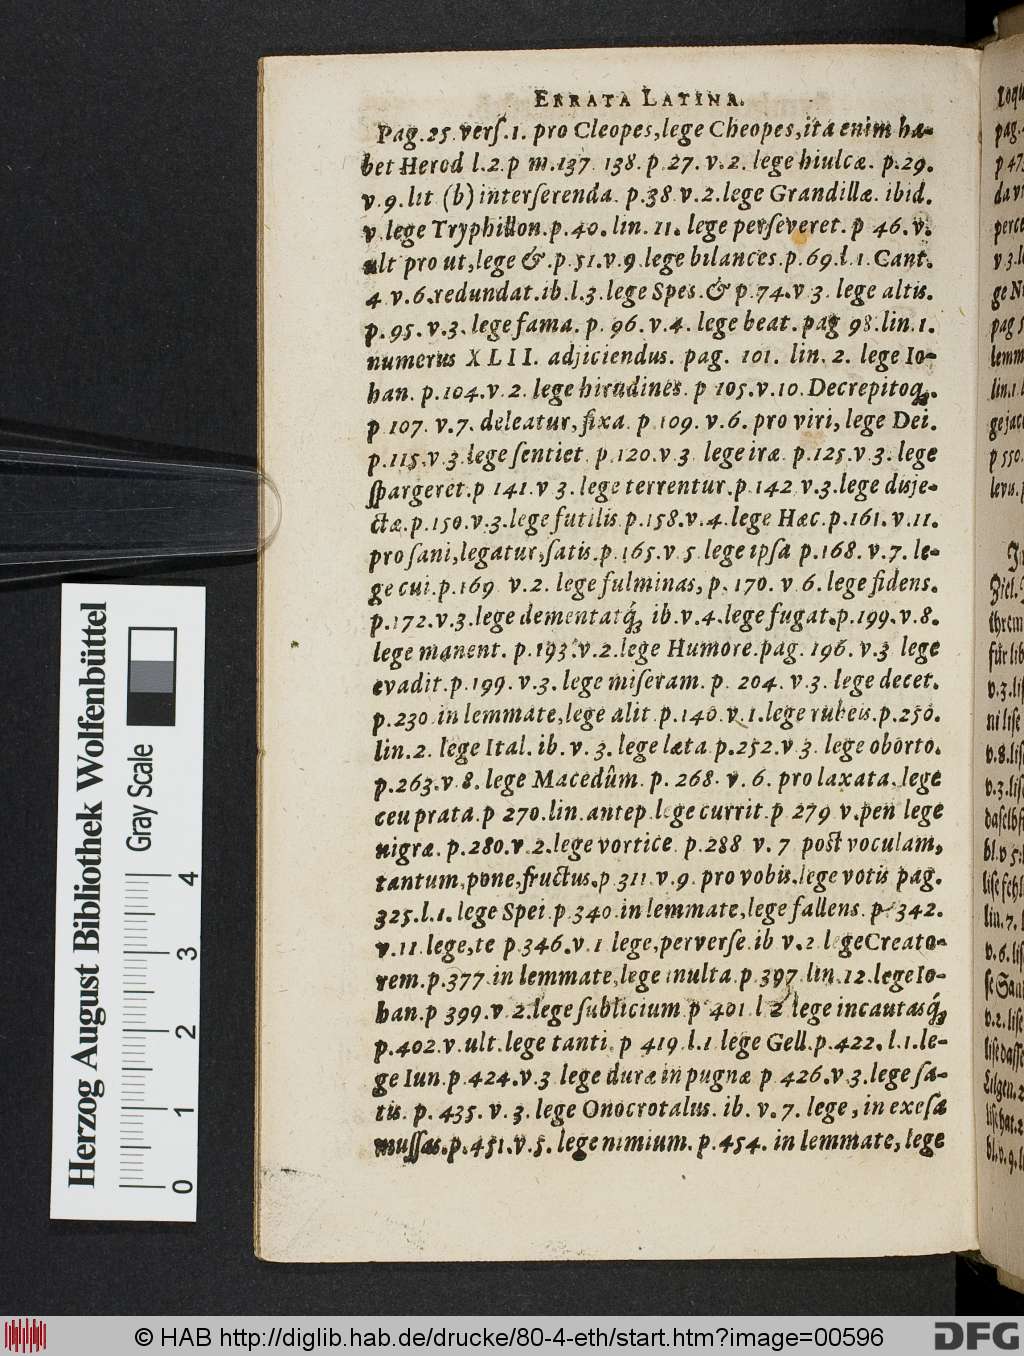 ERRATA LATINA.
Pag. 25. verſ. 1. pro Cleopes, lege Cheopes, ita enim ha-
bet Herod l. 2. p m. 137. 138. p. 27. v. 2. lege hiulcæ. p. 29.
v. 9. lit (b) interſerenda. p. 38. v. 2. lege Grandillæ. ibid.
v. lege Tryphillon. p. 40. lin. 11. lege perſeveret. p 46. v.
ult pro ut, lege &. p. 51. v. 9. lege bilances. p. 69. l. 1. Cant.
4. v. 6. redundat. ib. l. 3. lege Spes. & p. 74. v 3. lege altis.
p. 95. v. 3. lege fama. p. 96. v. 4. lege beat. pag 98. lin. 1.
numerus XLII. adjiciendus. pag. 101. lin. 2. lege Io-
han. p. 104. v. 2. lege hirudines. p 105. v. 10. Decrepitoq₃.
p 107. v. 7. deleatur, fixa. p 109. v. 6. pro viri, lege Dei.
p. 115. v. 3. lege ſentiet. p. 120. v. 3 lege iræ. p. 125. v. 3. lege
ſpargeret. p 141. v 3. lege terrentur. p. 142. v. 3. lege disje-
ctæ. p. 150. v. 3. lege futilis. p. 158. v. 4. lege Hæc. p. 161. v. 11.
pro ſani, legatur, ſatis. p. 165. v 5. lege ipſa p. 168. v. 7. le-
ge cui. p. 169 v. 2. lege fulminas, p. 170. v 6. lege fidens.
p. 172. v. 3. lege dementatq́₃ ib. v. 4. lege fugat. p. 199. v. 8.
lege manent. p. 193. v. 2. lege Humore. pag. 196. v. 3 lege
evadit. p. 199. v. 3. lege miſeram. p. 204. v. 3. lege decet.
p. 230 in lemmate, lege alit. p. 140. v. 1. lege rubeis. p. 250.
lin. 2. lege Ital. ib. v. 3. lege læta. p. 252. v 3. lege oborto.
p. 263. v 8. lege Macedûm. p. 268. v. 6. pro laxata. lege
ceu prata. p 270. lin. antep. lege currit. p 279 v. pen lege
nigræ. p. 280. v. 2. lege vortice. p. 288 v. 7 post voculam,
tantum, pone, fructus. p 311. v. 9. pro vobis. lege votis pag.
325. l. 1. lege Spei. p 340. in lemmate, lege fallens. p. 342.
v. 11. lege, te p 346. v. 1 lege, perverſe. ib v. 2 lege Creato-
rem. p. 377. in lemmate, lege multa. p. 397. lin. 12. lege Io-
han. p 399. v. 2. lege ſublicium. p 401 l 2 lege incautasq́₃
p. 402. v. ult. lege tanti. p 419. l. 1 lege Gell. p. 422. l. 1. le-
ge Iun. p. 424. v. 3 lege duræ in pugnæ p 426. v. 3. lege ſa-
tis. p. 435. v. 3. lege Onocrotalus. ib. v. 7. lege, in exeſa
muſſas. p. 451. v. 5. lege nimium. p. 454. in lemmate, lege
Herzog August Bibliothek Wolfenbüttel
Gray Scale
0 1 2 3 4
© HAB http://diglib.hab.de/drucke/80-4-eth/start.htm?image=00596
DFG